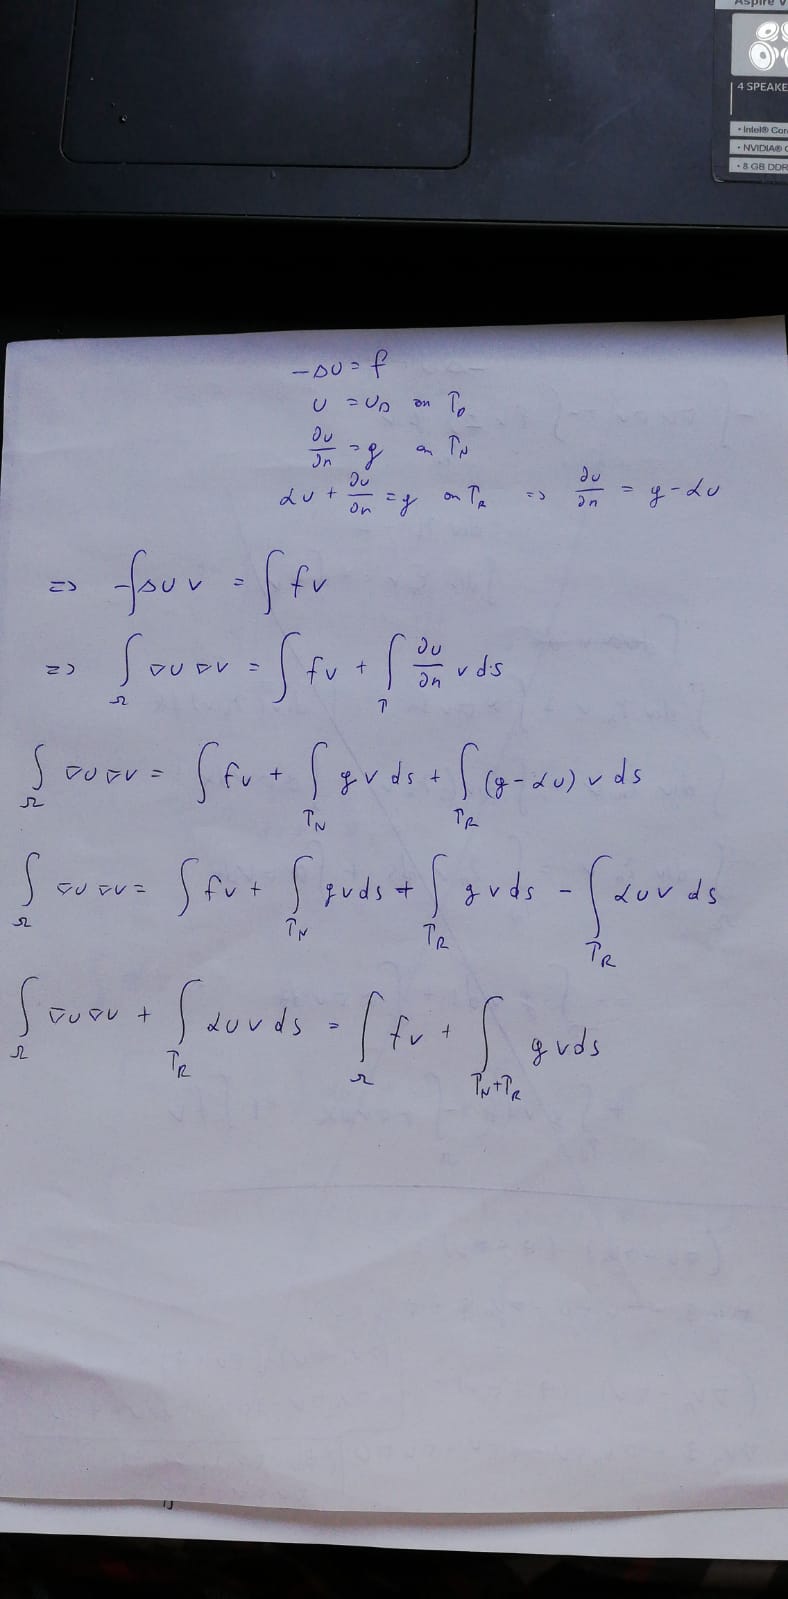 Aspire V
4 SPEAKE
• Intel® Cor
• NVIDIA® G
• 8 GB DDR
-Δu = f
u = u_D on Γ_D
∂u/∂n = g on Γ_N
αu + ∂u/∂n = g on Γ_R => ∂u/∂n = g - αu
=> -∫Δu v = ∫ f v
=> ∫_Ω ∇u ∇v = ∫ f v + ∫_Γ ∂u/∂n v ds
∫_Ω ∇u ∇v = ∫ f v + ∫_{Γ_N} g v ds + ∫_{Γ_R} (g - αu) v ds
∫_Ω ∇u ∇v = ∫ f v + ∫_{Γ_N} g v ds + ∫_{Γ_R} g v ds - ∫_{Γ_R} αu v ds
∫_Ω ∇u ∇v + ∫_{Γ_R} αu v ds = ∫_Ω f v + ∫_{Γ_N+Γ_R} g v ds